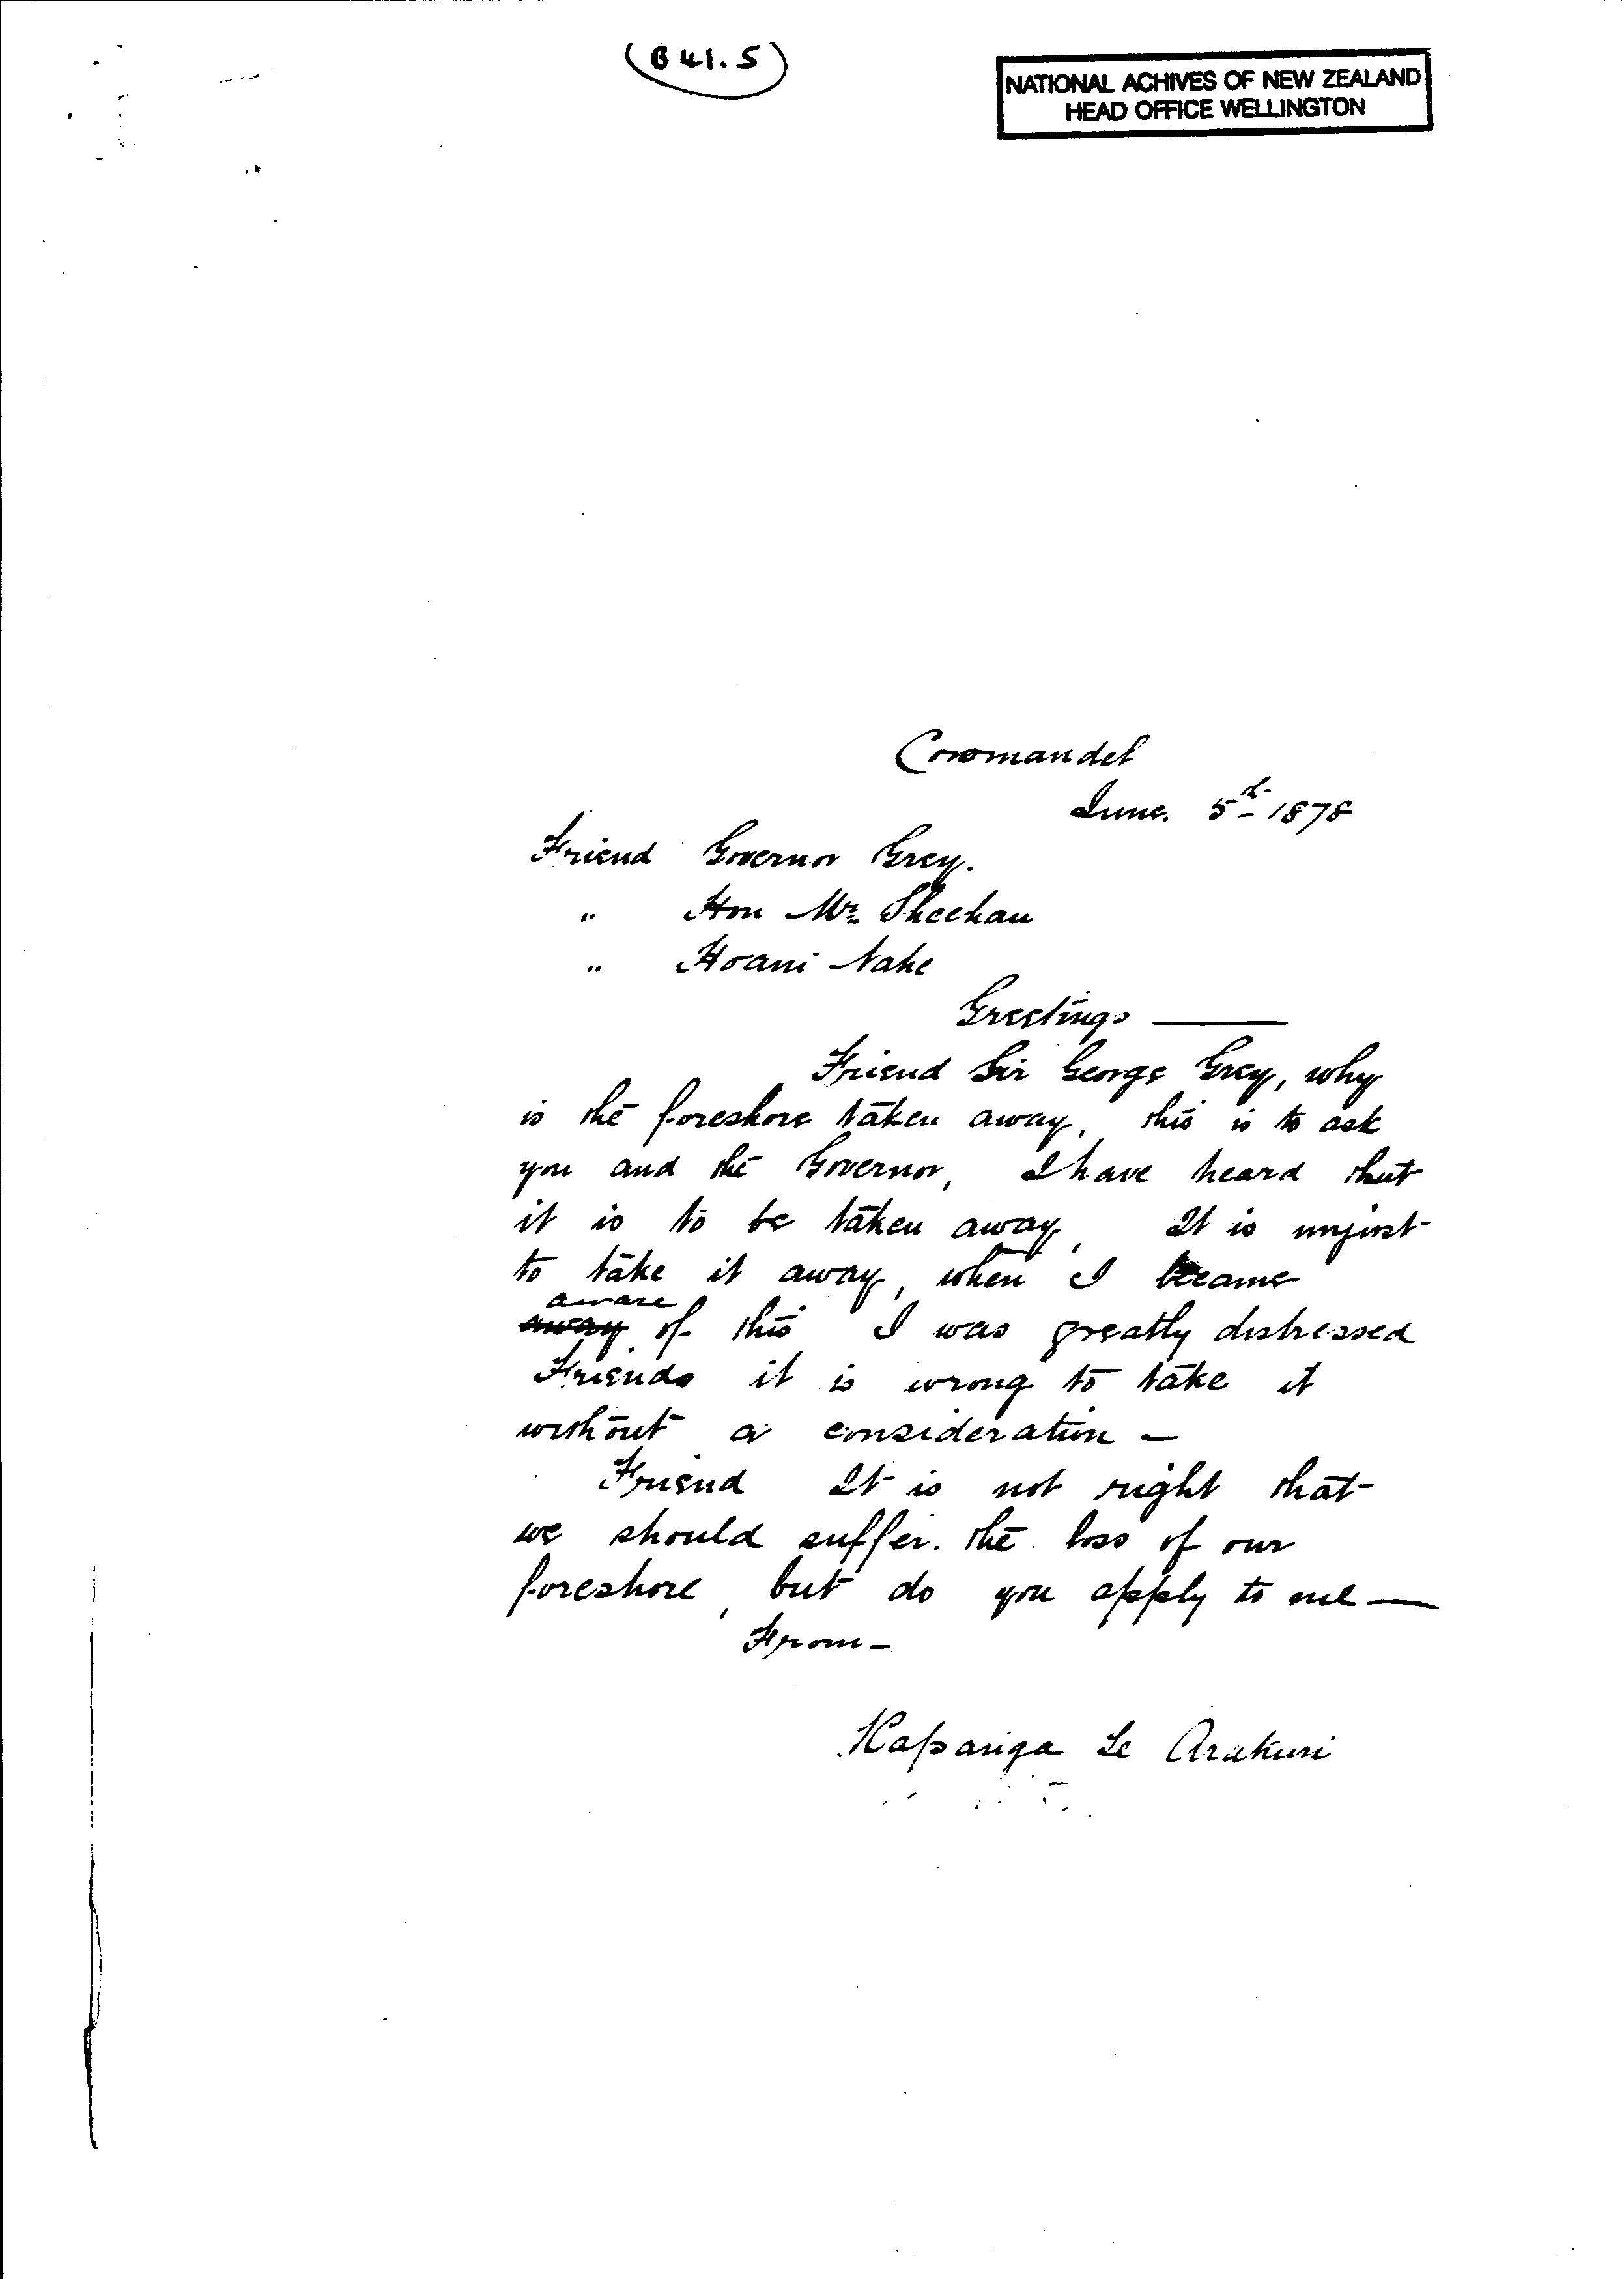 (B 41.5)
NATIONAL ACHIVES OF NEW ZEALAND
HEAD OFFICE WELLINGTON
Coromandel
June. 5th 1878
Friend Governor Grey.
" Hon Mr. Sheehan
" Hoani Nahe
Greetings —
Friend Sir George Grey, why
is the foreshore taken away, this is to ask
you and the Governor, I have heard that
it is to be taken away, It is unjust
to take it away, when I became
aware
away of this I was greatly distressed
Friends it is wrong to take it
without a consideration —
Friend It is not right that
we should suffer. the loss of our
foreshore, but do you apply to me —
From —
Kapanga Te Arakuri